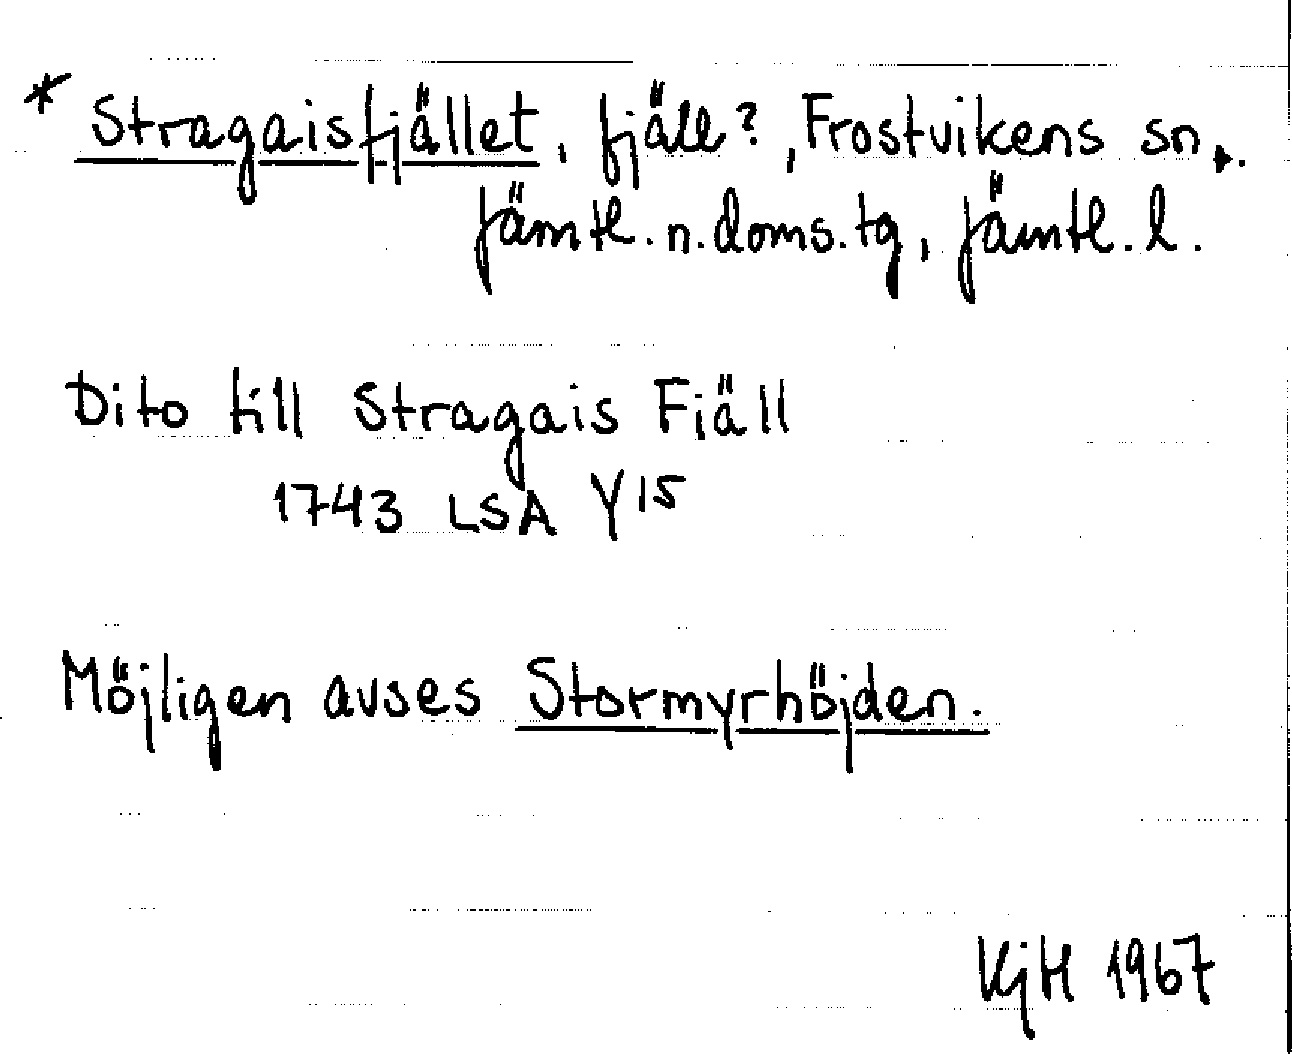 * Stragaisfjället, fjäll?, Frostvikens sn,.
Jämtl. n. doms. tg, Jämtl. l.
Dito till Stragais Fiäll
1743 LSA Y15
Möjligen avses Stormyrhöjden.
KjH 1967